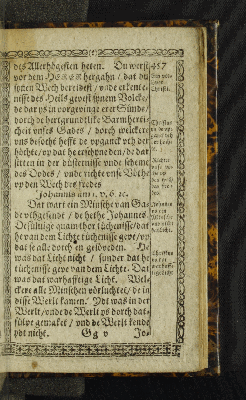 des Allerhögesten heten. Du werst
vor dem HEREN hergahn / dat du
synen Wech beredest / vnde erkente-
nisse des Heils gevest synem Volcke /
de dar ys in vorgevinge erer Sünde /
dorch de hergrundtlike Barmherti-
cheit vnses Gades / dorch welckere
vns besocht hefft de vpganck vth der
höchte / vp dat he erschyne den / de dar
sitten in der düsternisse vnde scheme
des Dodes / vnde richte vnse Vöthe
vp den Wech des fredes
Johannis am 1. v. 6. etc.
Dat wart ein Minsche van Ga-
de vthgesendt / de hethe Johannes.
De sülvige quam thor tüchenisse / dat
he van dem Lichte tüchenisse geve / vp
dat se alle dorch en gelöveden. He
was dat Licht nicht / sunder dat he
tüchenisse geve van dem Lichte. Dat
was dat warhafftige Licht. Wel-
ckere alle Minschen vorluchtet / de in
disse Werlt kamen. Jdt was in der
Werlt / vnde de Werlt ys dorch dat-
sülve gemaket / vnd de Werlt kende
ydt nicht. Gg v Jo-
457